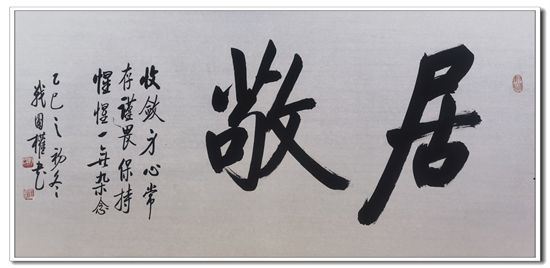 居敬
收斂身心常
存謹畏保持
惺惺一無杂念
乙巳之初冬
國權书